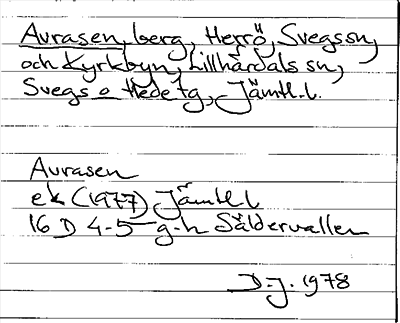 Avrasen, berg, Herrö, Svegs sn,
och Kyrkbyn, Lillhärdals sn,
Svegs o Hede tg, Jämtl. l.
Avrasen
ek (1977) Jämtl l
16 D 4-5 g-h Säldervallen
D.J. 1978